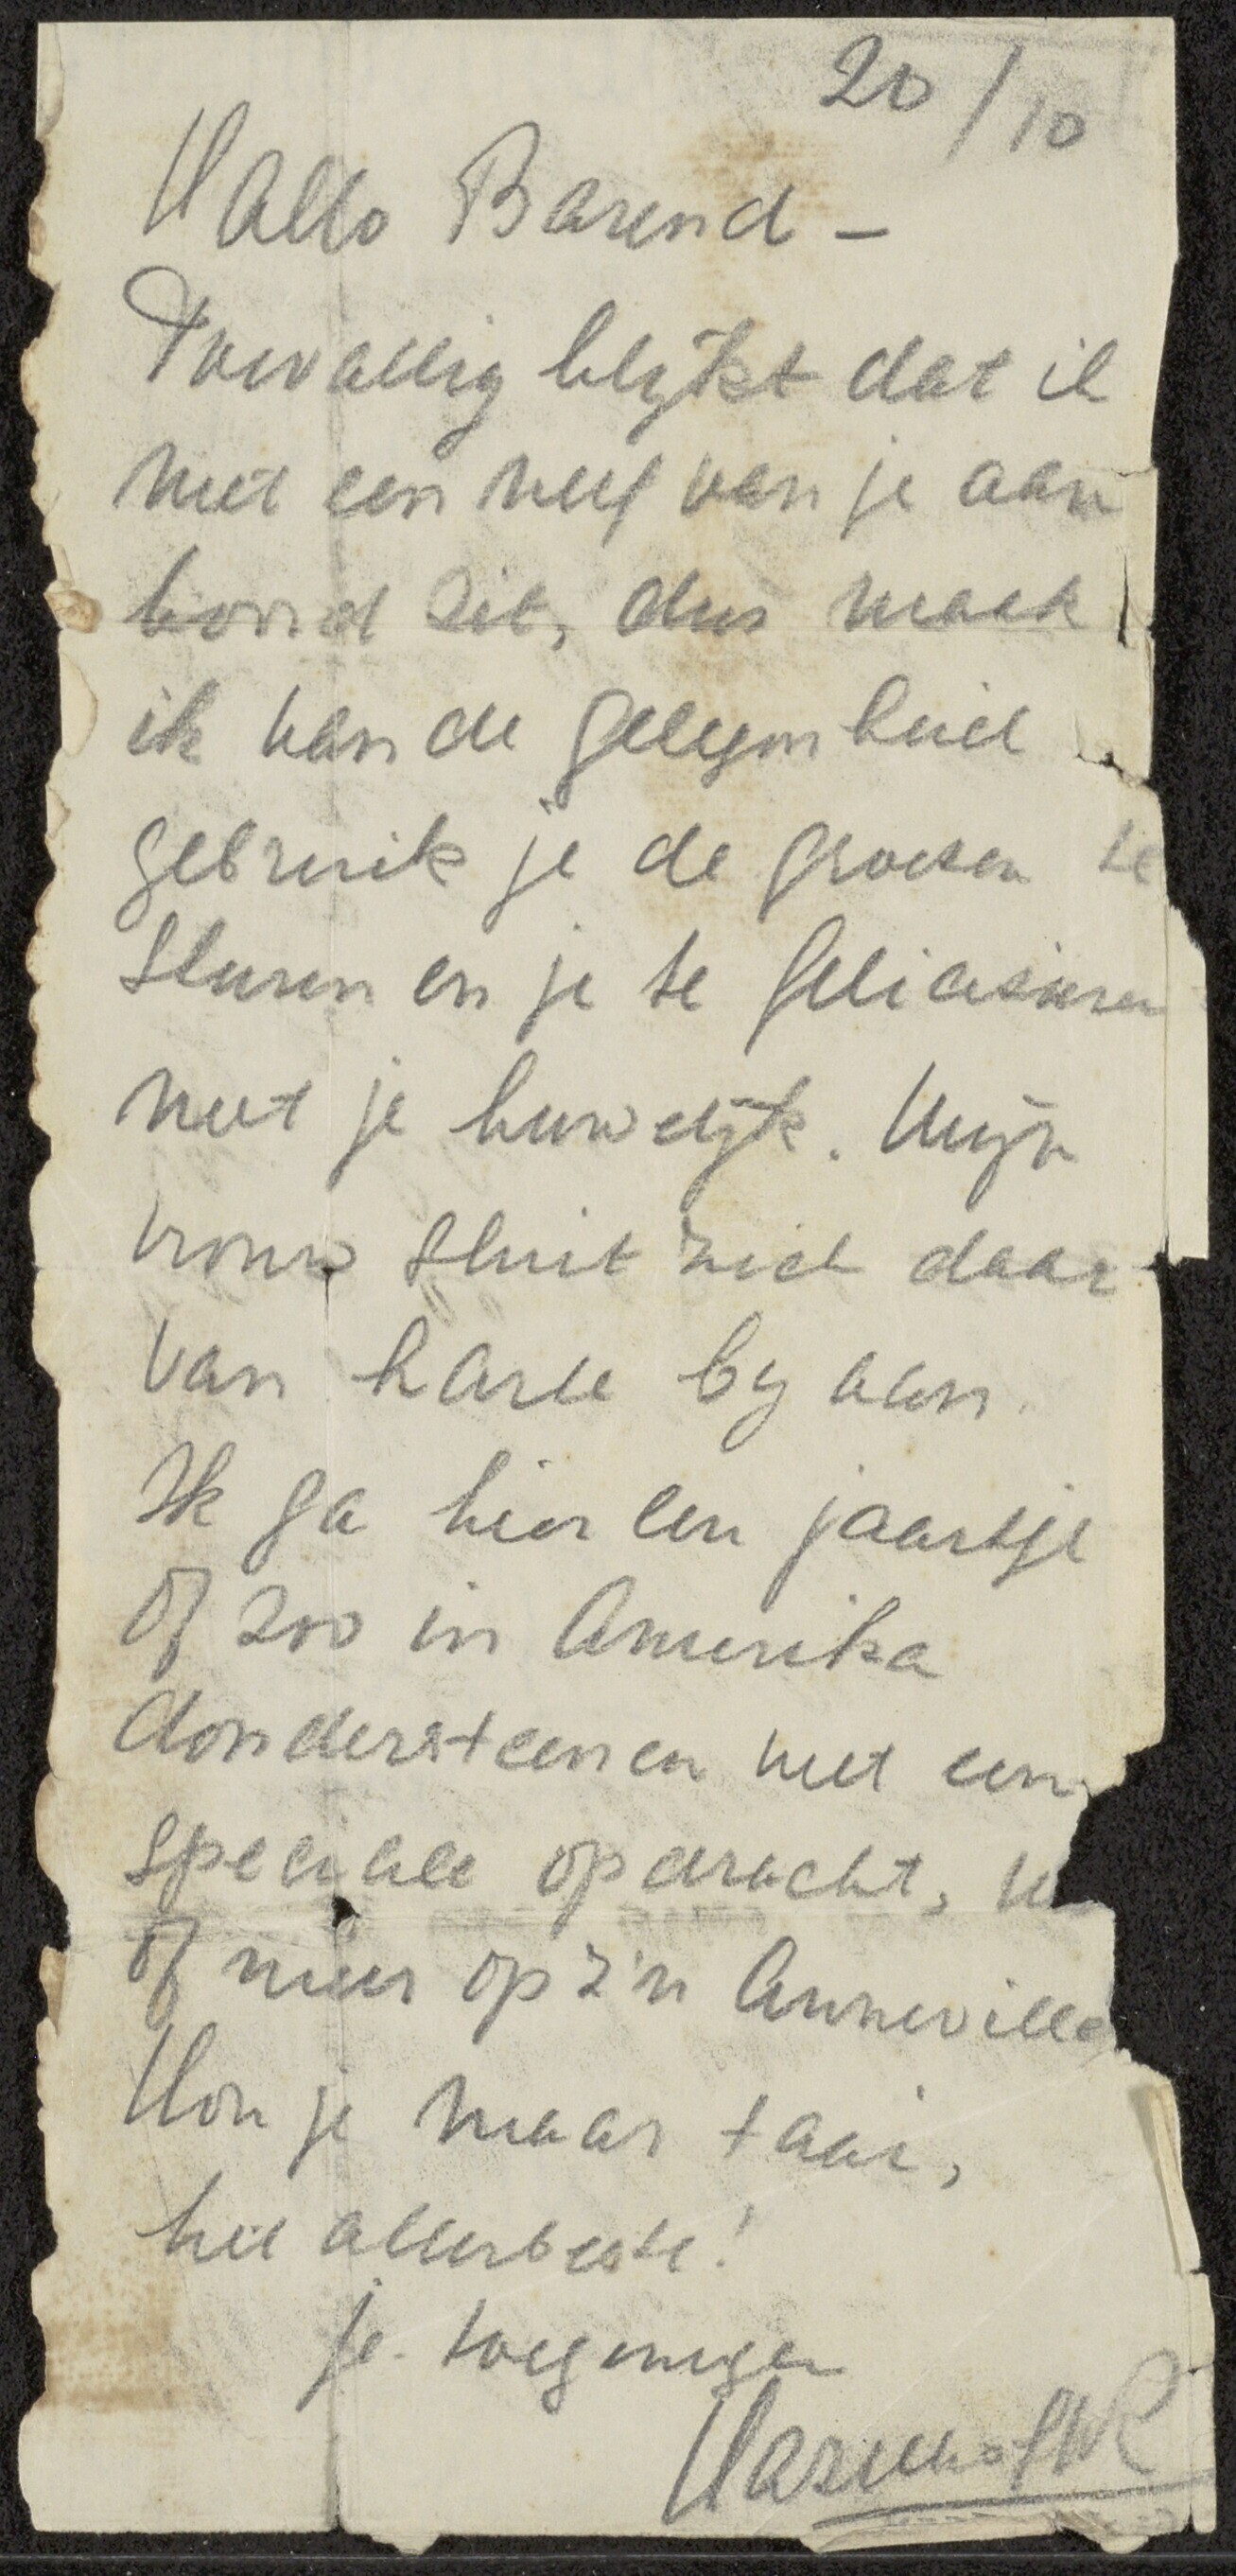 20/10
Hallo Barend –
Toevallig blijkt dat ik
met een neef van je aan
boord zit, dus maak
ik van de gelegenheid
gebruik je de groeten te
sturen en je te feliciteeren
met je huwelijk. Mijn
vrouw sluit zich daar
van harte bij aan.
Ik ga hier een jaartje
of zoo in Amerika
dondersteenen met een
speciale opdracht,
of meer op z'n Anneville
Hou je maar taai,
het allerbeste!
je toegenegen